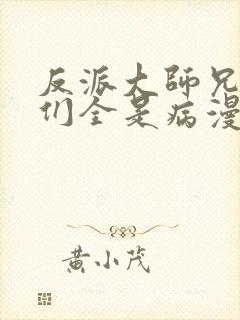 反派大師兄
们全是病漫
黄小茂